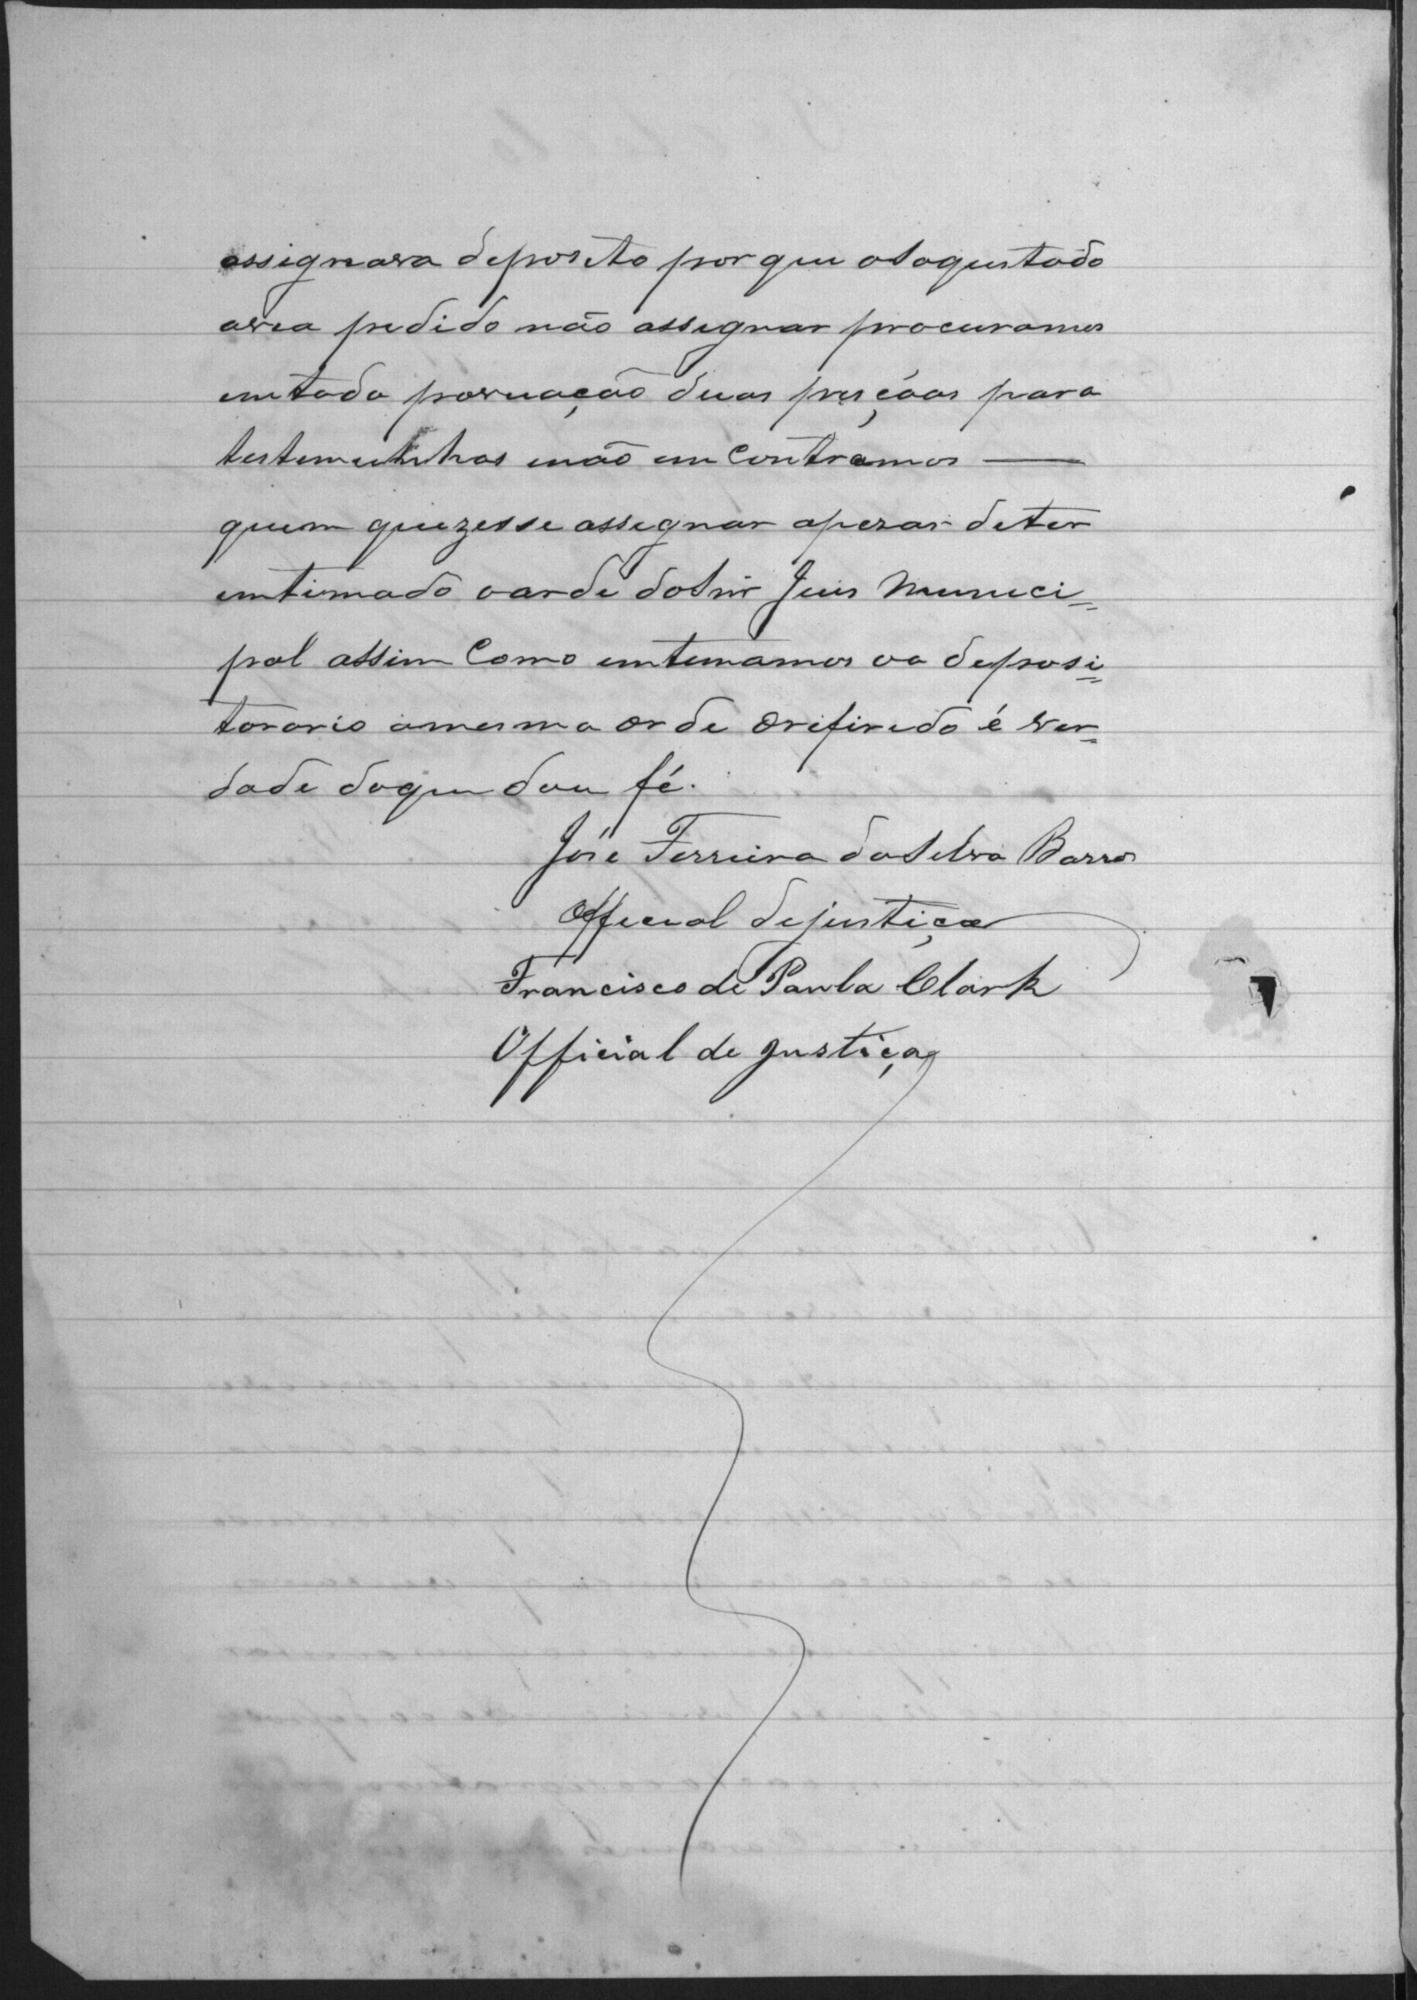 assignara deposito por que o Soqustado
avia pedido não assegnar procuramos
em toda povuação duas presçóas para
testemunhas e não em Contramos —
quem quizesse assegnar apezar de ter
emtimado o arde do Snr Juis Muneci=
pal assim Como emtemamos oo deposi=
torario a mesma orde o rifirido é ver=
dade do que dou fé.
José Ferreira da Selva Barros
Offecial de justiça
Francisco de Paula Clark
Official de justiça